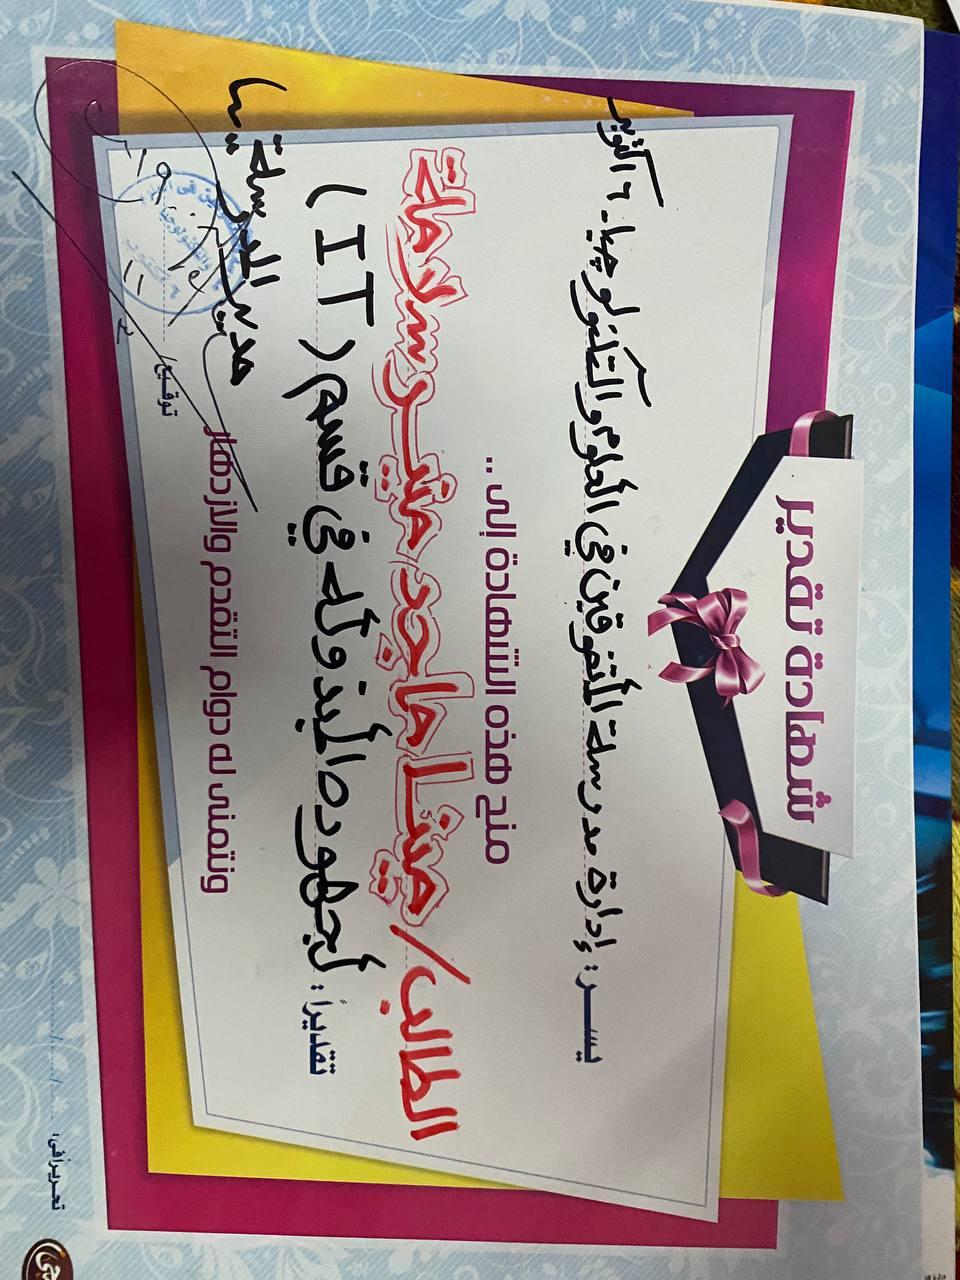 شهادة تقدير
يسر: إدارة مدرسة المتفوقين في العلوم والتكنولوجيا - ٦ أكتوبر
منح هذه الشهادة إلى ..
الطالب / مينا ماجد منير سلامة
تقديراً: لجهوده المبذولة في قسم (IT)
ونتمنى له دوام التقدم والازدهار
مدير المدرسة
توقيع/
تحريراً في: / /